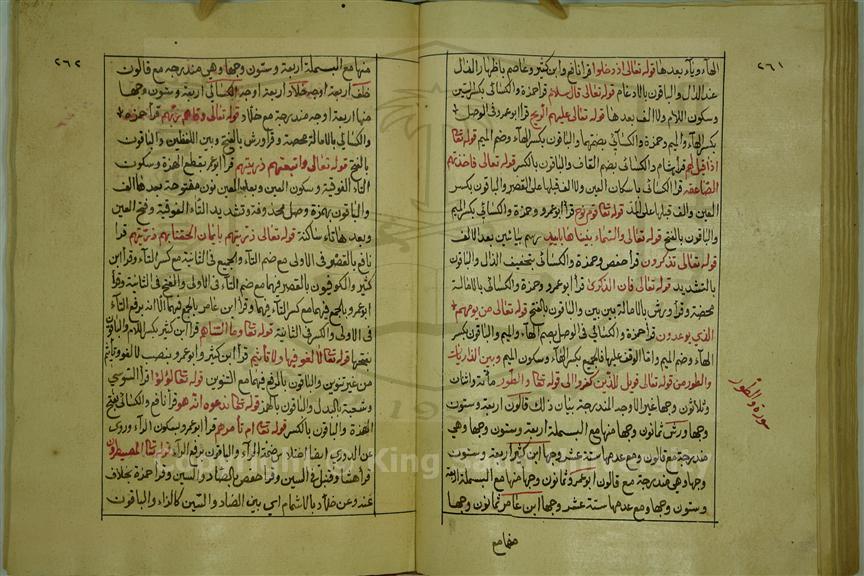 ٢٦١
الهاء وياء بعدها قوله تعالى اذ دخلوا قرا نافع وابن كثير وعاصم باظهار الذال
عند الدال والباقون بالادغام قوله تعالى قال سلام قرا حمزة والكسائي بكسر السين
وسكون اللام ولا الف بعدها قوله تعالى عليهم الريح قرا ابو عمرو في الوصل
بكسر الهاء والميم وحمزة والكسائي بضمهما والباقون بكسر الهاء وضم الميم قوله تعالى
اذ قيل لهم قرا هشام والكسائي بضم القاف والباقون بالكسر قوله تعالى فاخذتهم
الصاعقة قرا الكسائي باسكان العين ولا الف قبلها على القصر والباقون بكسر
العين والف قبلها على المد قوله تعالى وقوم نوح قرا ابو عمرو وحمزة والكسائي بكسر الميم
والباقون بالفتح قوله تعالى والسماء بنيناها باييد رسم بيائين بعد الالف
قوله تعالى تذكرون قرا حفص وحمزة والكسائي بتخفيف الذال والباقون
بالتشديد قوله تعالى فان الذكرى قرا ابو عمرو وحمزة والكسائي بالامالة
محضة وقرا ورش بالامالة بين بين والباقون بالفتح قوله تعالى من يومهم
الذي يوعدون قرا حمزة والكسائي في الوصل بضم الهاء والميم والباقون بكسر
الهاء وضم الميم واما الوقف عليها فالجميع بكسر الهاء وسكون الميم وبين الذاريات
والطور من قوله تعالى فويل للذين كفروا الى قوله تعالى والطور مائة واثنان
وثلاثون وجها غير الاوجه المندرجة بيان ذلك قالون اربعة وستون
وجها ورش ثمانون وجها منها مع البسملة اربعة وستون وجها وهي
مندرجة مع قالون ومع عدمها ستة عشر وجها ابن كثير اربعة وستون
وجها وهي مندرجة مع قالون ابو عمرو ثمانون وجها منها مع البسملة اربعة
وستون وجها ومع عدمها ستة عشر وجها ابن عامر ثمانون وجها
منها مع
سورة والطور
٢٦٢
منها مع البسملة اربعة وستون وجها وهي مندرجة مع قالون
خلف اربعة اوجه خلاد اربعة اوجه الكسائي اربعة وستون وجها
منها اربعة اوجه مندرجة مع خلاد قوله تعالى ووقاهم ربهم قرا حمزة
والكسائي بالامالة محضة وقرا ورش بالفتح وبين اللفظين والباقون
بالفتح قوله تعالى واتبعتهم ذريتهم قرا ابو عمرو بقطع الهمزة وسكون
التاء الفوقية وسكون العين وبعد العين نون مفتوحة بعدها الف
والباقون بهمزة وصل محذوفة وتشديد التاء الفوقية وفتح العين
وبعدها تاء ساكنة قوله تعالى ذريتهم بايمان الحقنا بهم ذريتهم قرا
نافع بالقصر في الاولى مع ضم التاء والجمع في الثانية مع كسر التاء وقرا ابن
كثير والكوفيون بالقصر فيهما مع ضم التاء في الاولى والفتح في الثانية وقرا
ابو عمرو بالجمع فيهما مع كسر التاء فيهما وقرا ابن عامر بالجمع فيهما الا انه يرفع التاء
في الاولى والكسر في الثانية قوله تعالى وما التناهم قرا ابن كثير بكسر اللام والباقون
بفتحها قوله تعالى لا لغو فيها ولا تاثيم قرا ابن كثير وابو عمرو بنصب لا لغو وتاثيم
من غير تنوين والباقون بالرفع فيهما مع التنوين قوله تعالى لؤلؤ قرا السوسي
وشعبة بالبدل والباقون بالهمز قوله تعالى ندعوه انه هو قرا نافع والكسائي بفتح
الهمزة والباقون بالكسر قوله تعالى ام تامرهم قرا ابو عمرو بسكون الراء وروي
عن الدوري ايضا اختلاس ضمة الراء والباقون برفع الراء قوله تعالى المصيطرون
قرا هشام وقنبل في السين وقرا حفص بالصاد والسين وقرا حمزة بخلاف
عنه وعن خلاد بالاشمام اي بين الصاد والسين كالزاء والباقون